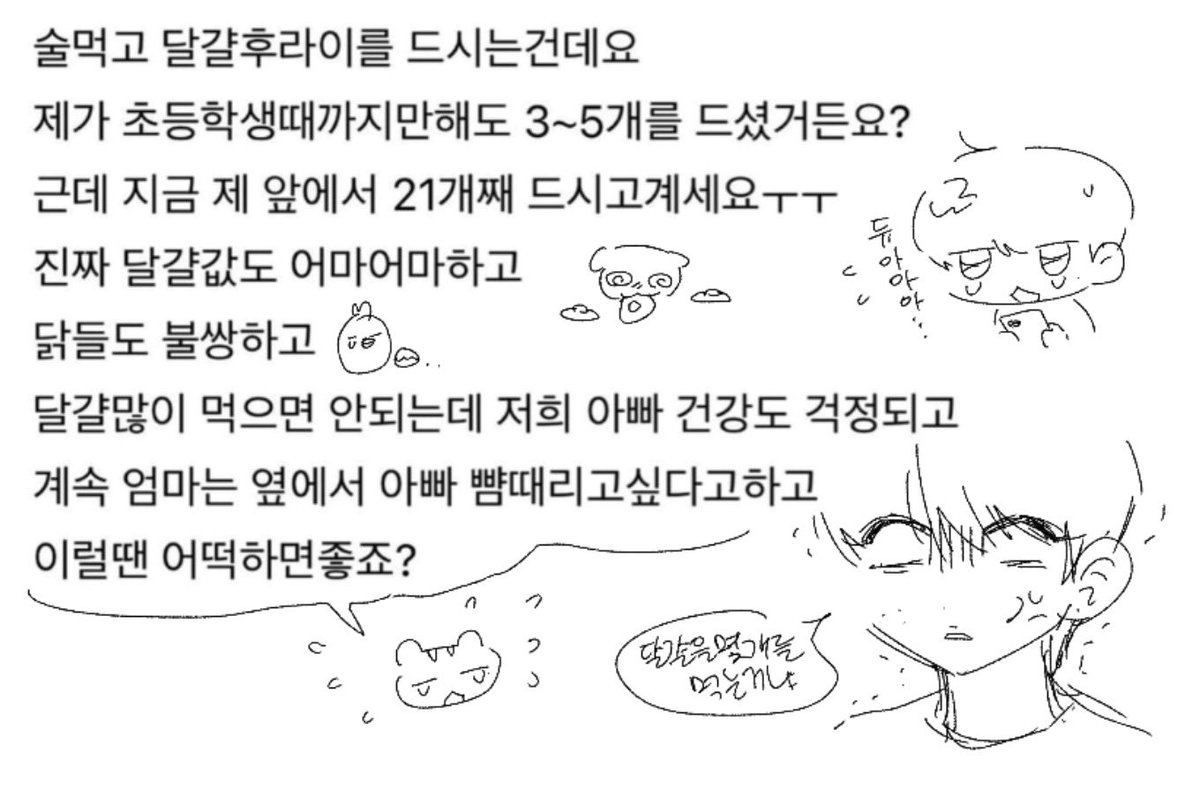 술먹고 달걀후라이를 드시는건데요
제가 초등학생때까지만해도 3~5개를 드셨거든요?
근데 지금 제 앞에서 21개째 드시고계세요ㅜㅜ
진짜 달걀값도 어마어마하고
닭들도 불쌍하고
달걀많이 먹으면 안되는데 저희 아빠 건강도 걱정되고
계속 엄마는 옆에서 아빠 뺨때리고싶다고하고
이럴땐 어떡하면좋죠?
듀아아아..
달걀을몇개를
먹는거냐